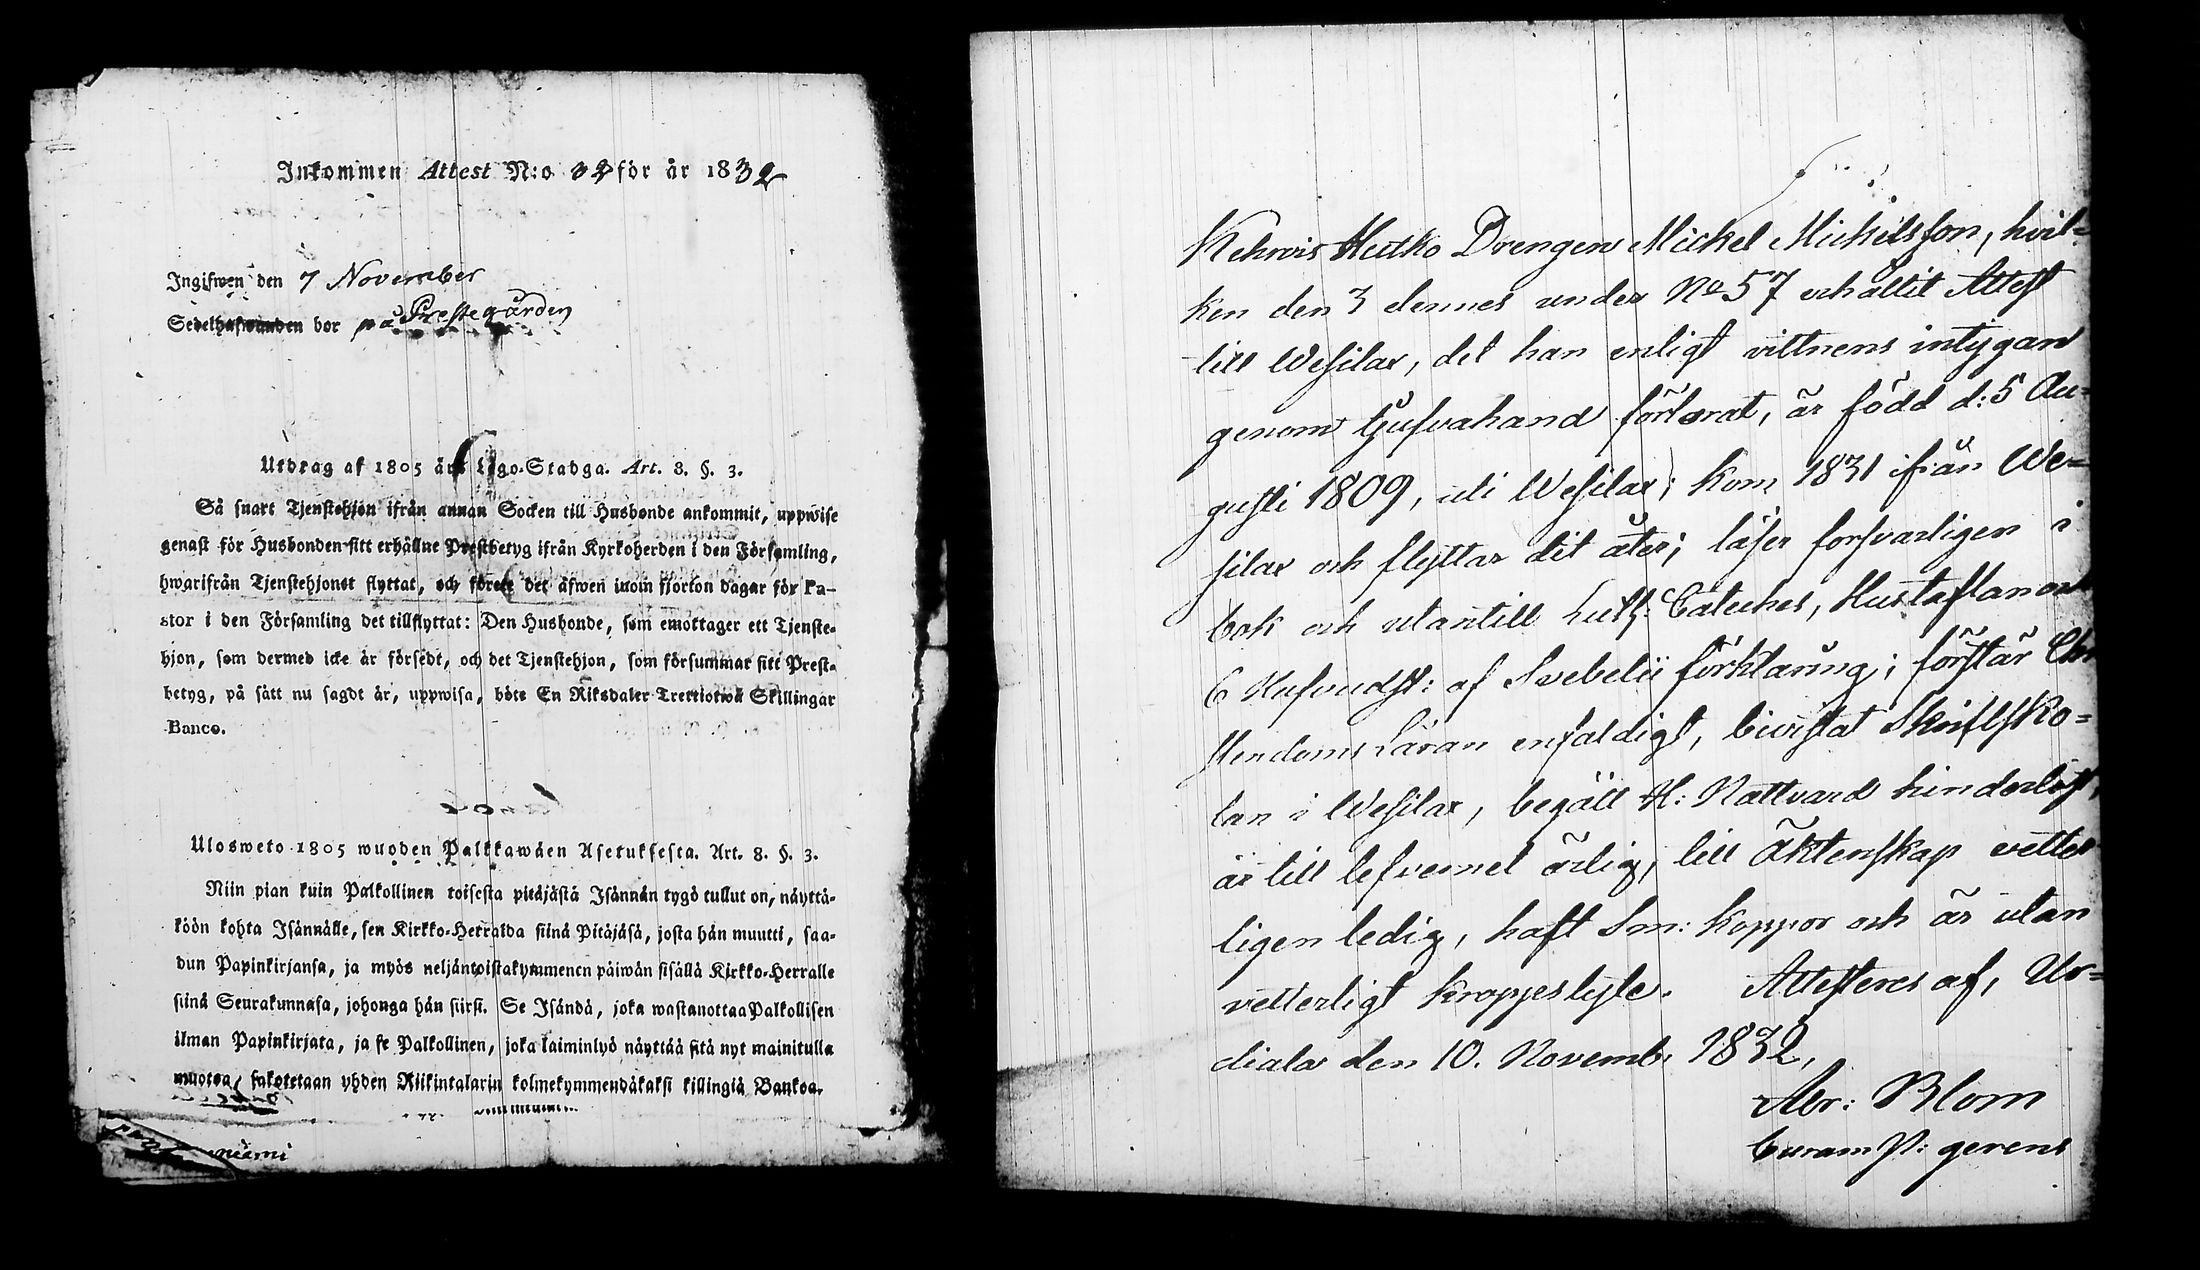 Inkommen Attest N:o 32 för år 1832
Ingifwen den 7 November
Sedelhafwanden bor på Prestegården
Utdrag af 1805 års Lego-Stadga. Art. 8. §. 3.
Så snart Tjenstehjon ifrån annan Socken till Husbonde ankommit, uppwise
genast för Husbonden sitt erhållne Prestbetyg ifrån Kyrkoherden i den Församling,
hwarifrån Tjenstehjonet flyttat, och förete det äfwen inom fjorton dagar för Pa-
stor i den Församling det tillflyttat: Den Husbonde, som emottager ett Tjenste-
hjon, som dermed icke är försedt, och det Tjenstehjon, som försummar sitt Prest-
betyg, på sätt nu sagdt är, uppwisa, böte En Riksdaler Trettiotwå Skillingar
Banco.
Ulosweto 1805 wuoden Palkkawäen Asetuksesta. Art. 8. §. 3.
Niin pian kuin Palkollinen toisesta pitäjästä Isännän tygö tullut on, näyttä-
köön kohta Isännälle, sen Kirkko-Herralda siinä Pitäjäsä, josta hän muutti, saa-
dun Papinkirjansa, ja myös neljäntoistakymmenen päiwän sisällä Kirkko-Herralle
siinä Seurakunnasa, johonga hän siirsi. Se Isändä, joka wastanottaa Palkollisen
ilman Papinkirjata, ja se Palkollinen, joka laiminlyö näyttää sitä nyt mainitulla
muotoa, sakotetaan yhden Riikintalarin kolmekymmendäkaksi killingiä Bankoa.
niemi
Kehrois Hutko Drengen Mickel Mickelsson, hvil-
ken den 3 dennes under No 57 erhållit Attest
till Wesilax, det han enligt vittnens intygan
genom tjufvahand förlorat, är född d: 5 Au-
gusti 1809, uti Wesilax; kom 1831 ifrån We-
silax och flyttar dit åter; läser forsvarligen i
bok och utantill Luth: Cateches, Hustaflan och
6 Hufvudst: af Svebelii förklaring; förstår Chri
stendoms Läran enfaldigt, bivistat Skriftsko-
lan i Wesilax, begått H: Nattvard hinderlöst,
är till lefvernet ärlig, till äktenskap vetter-
ligen ledig, haft Sm: koppor och är utan
vetterligt kroppeslyte. Attesteres af, Ur-
diala den 10. Novemb: 1832,
Abr: Blom
Curam P: gerens